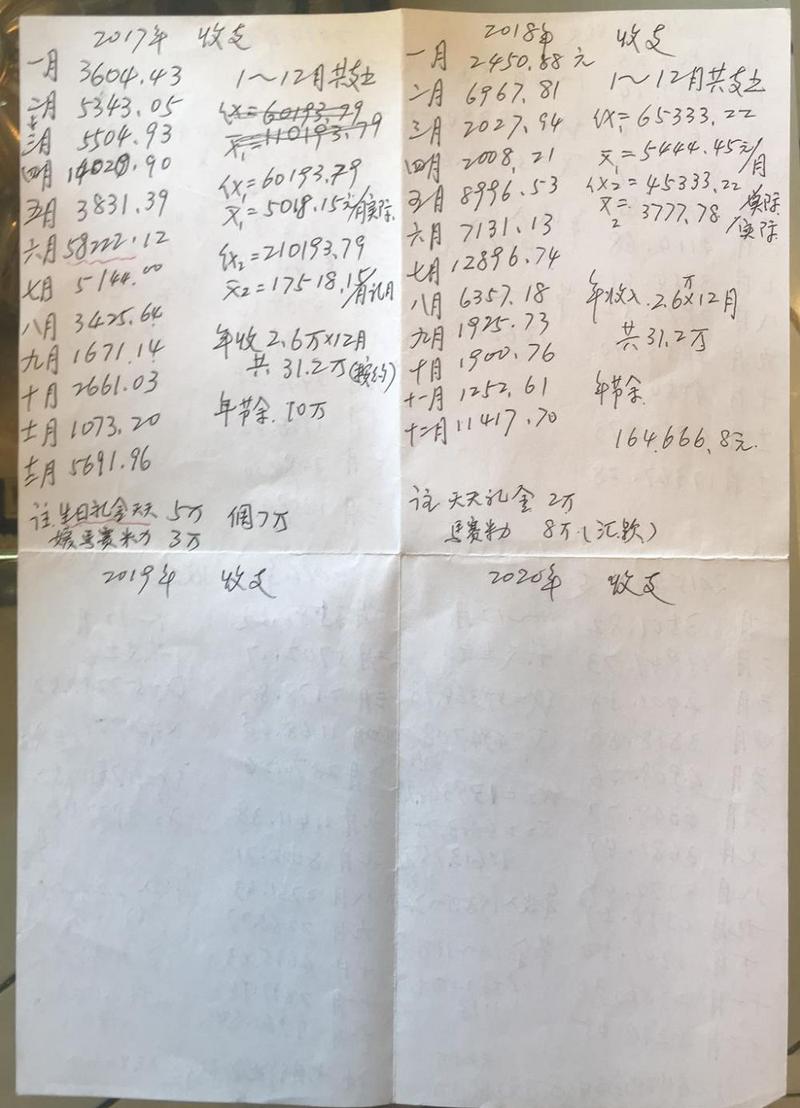 2017年 收支
一月 3604.43
二月 5343.05
三月 5504.93
四月 14029.90
五月 3831.39
六月 58222.12
七月 5144.00
八月 3425.64
九月 1671.14
十月 2661.03
十一月 1073.20
十二月 5691.96
1～12月共支出
Σx=60193.79
x̄₁=110193.79
Σx₁=60193.79
x̄₁=5018.15元/月实际
Σx₂=210193.79
x̄₂=17518.15/月
年收2.6万×12月
共31.2万
年节余.10万
注.生日礼金天天 5万 倜7万
媛马赛米力 3万
2018年 收支
一月 2450.88元
二月 6967.81
三月 2027.94
四月 2008.21
五月 8996.53
六月 7131.13
七月 12896.74
八月 6357.18
九月 1925.73
十月 1900.76
十一月 1252.61
十二月 11417.70
1～12月共支出
Σx₁=65333.22
x̄₁=5444.45元/月
Σx₂=45333.22实际
x̄₂=3777.78/实际
年收入.2.6万×12月
共31.2万
年节余.
164.666.8元.
注 天天礼金 2万
马赛米力 8万.(汇款)
2019年 收支
2020年 收支